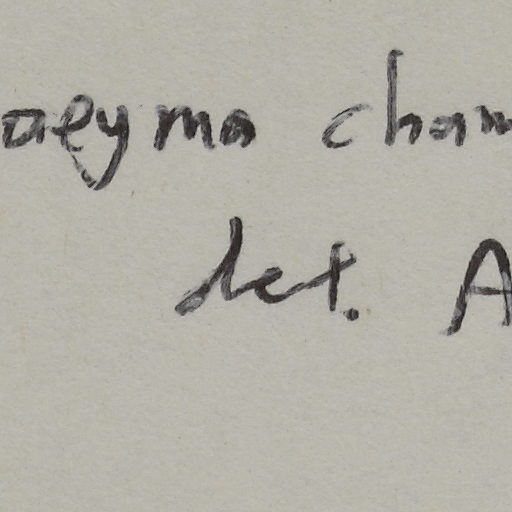 aeyma cham
det. A